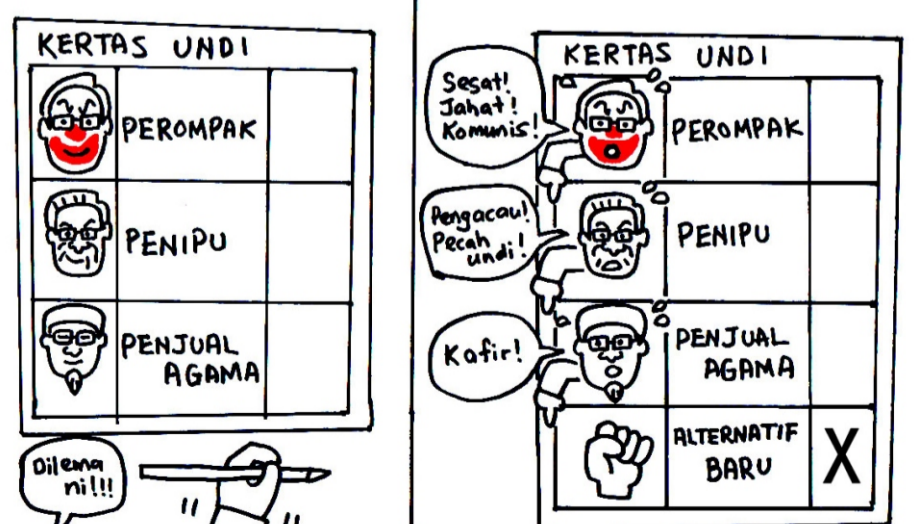 KERTAS UNDI
PEROMPAK
PENIPU
PENJUAL
AGAMA
Dilema
ni!!!
KERTAS UNDI
Sesat!
Jahat!
Komunis!
PEROMPAK
Pengacau!
Pecah
undi!
PENIPU
Kafir!
PENJUAL
AGAMA
ALTERNATIF
BARU
X